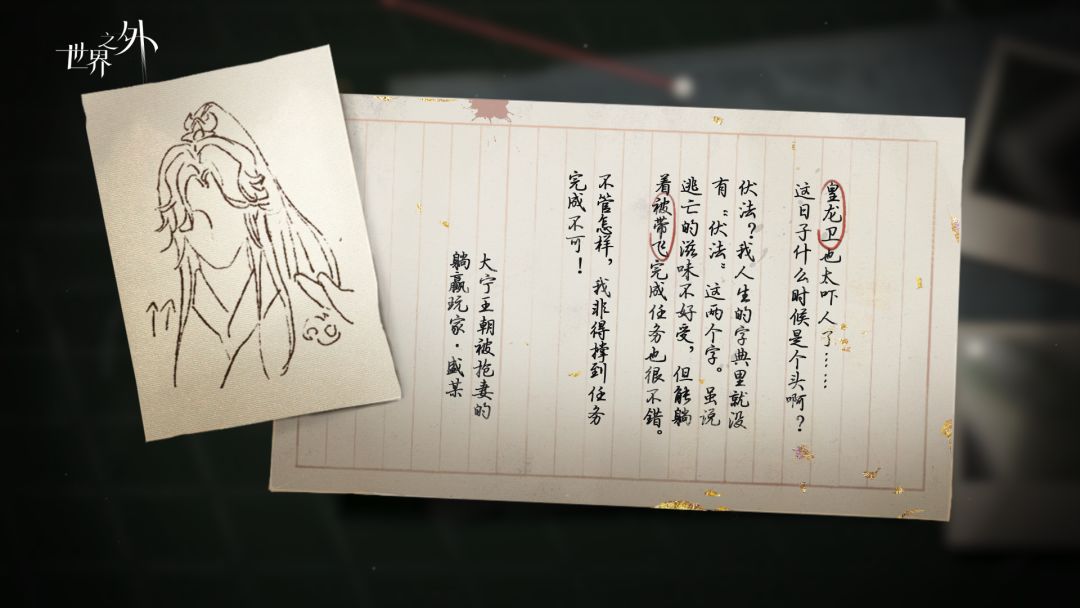 世界之外
皇龙卫也太吓人了……
这日子什么时候是个头啊？
伏法？我人生的字典里就没
有“伏法”这两个字。虽说
逃亡的滋味不好受，但能躺
着被带飞完成任务也很不错。
不管怎样，我非得撑到任务
完成不可！
大宁王朝被抢妻的
躺赢玩家·盛某